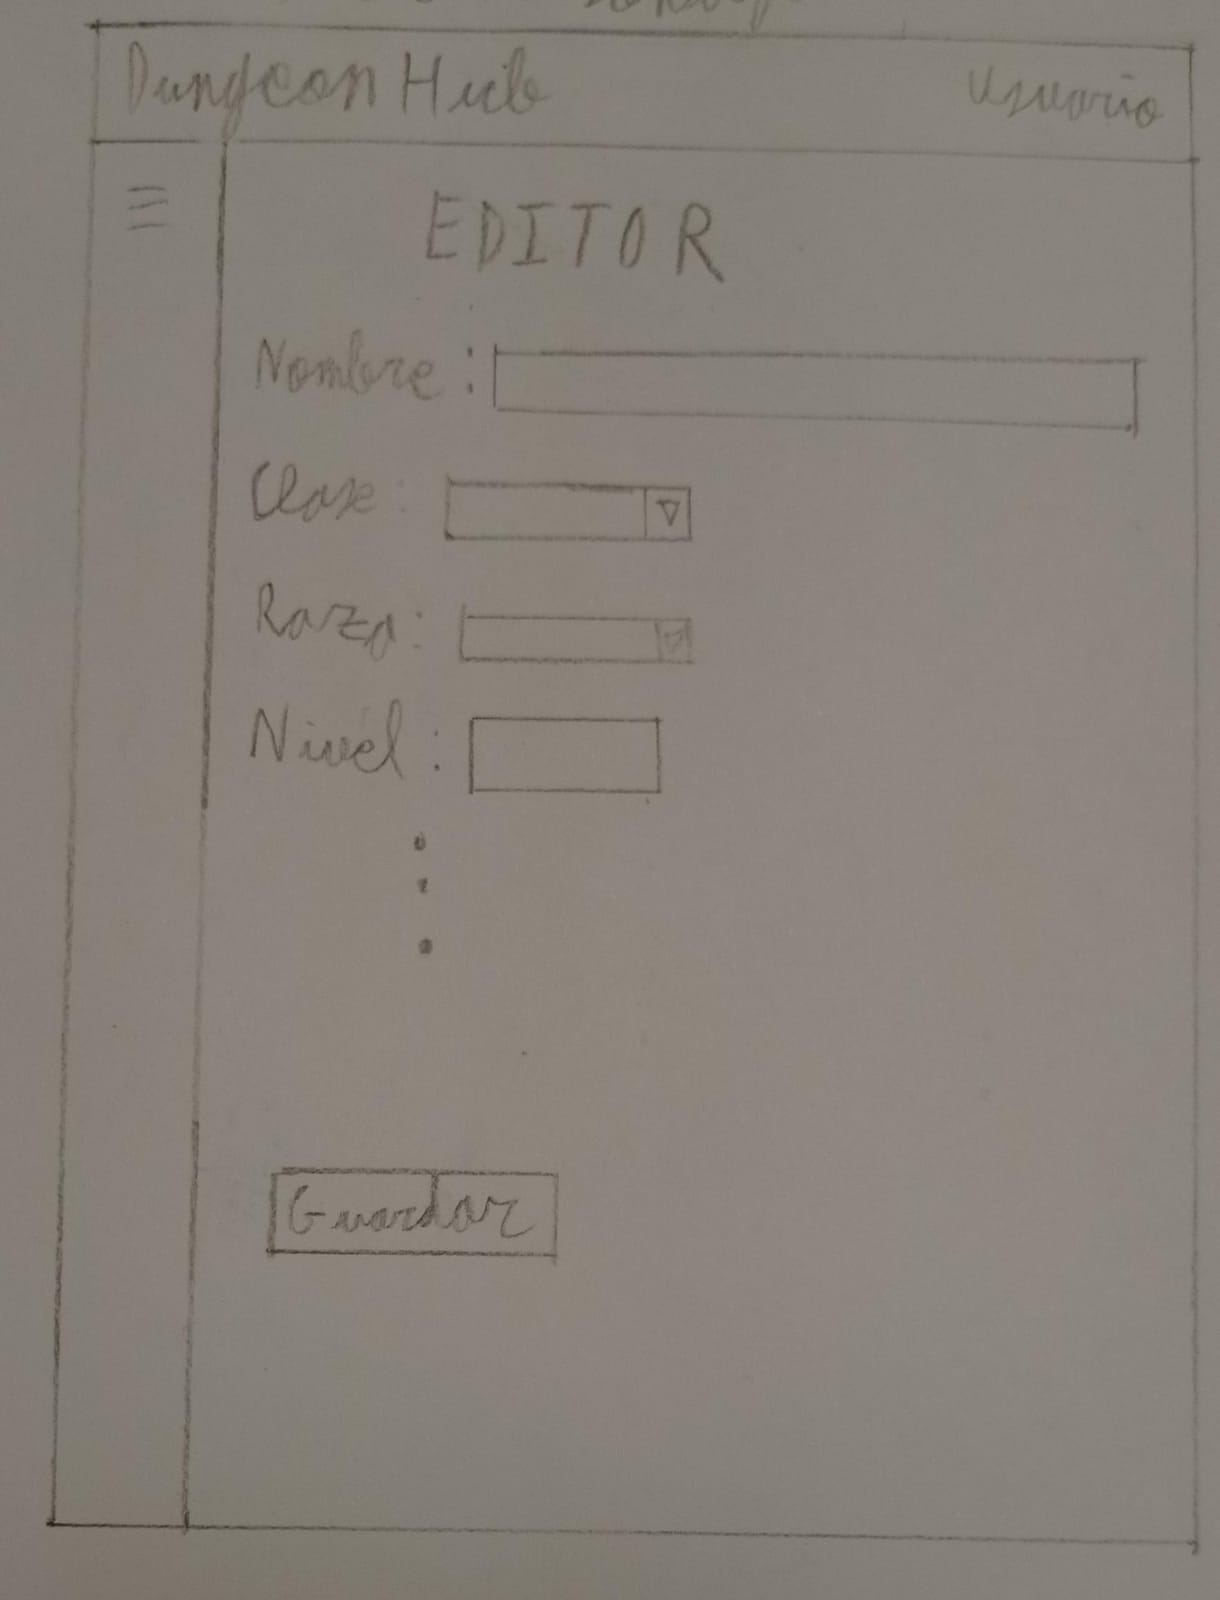 Dungeon Hub Usuario
EDITOR
Nombre :
Clase :
Raza :
Nivel :
Guardar